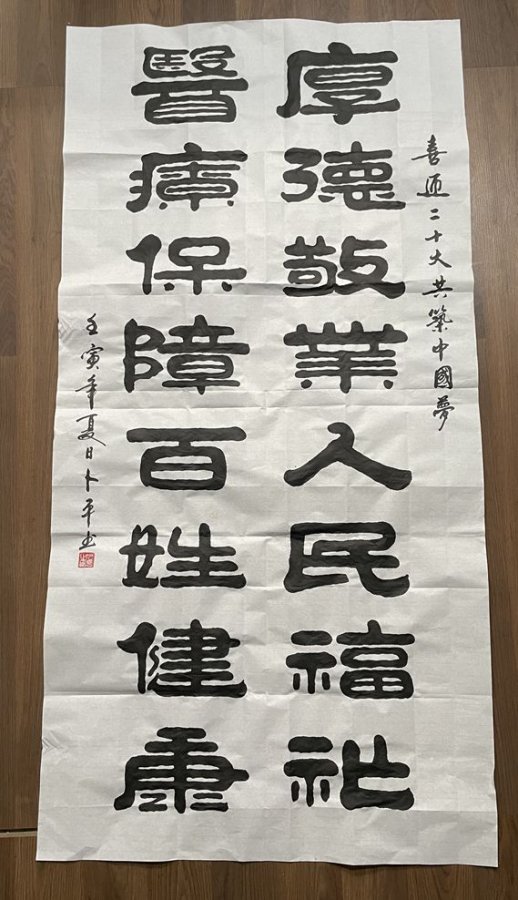 喜迎二十大共築中國夢
厚德敬業人民福祉
醫療保障百姓健康
壬寅年夏日卜平书